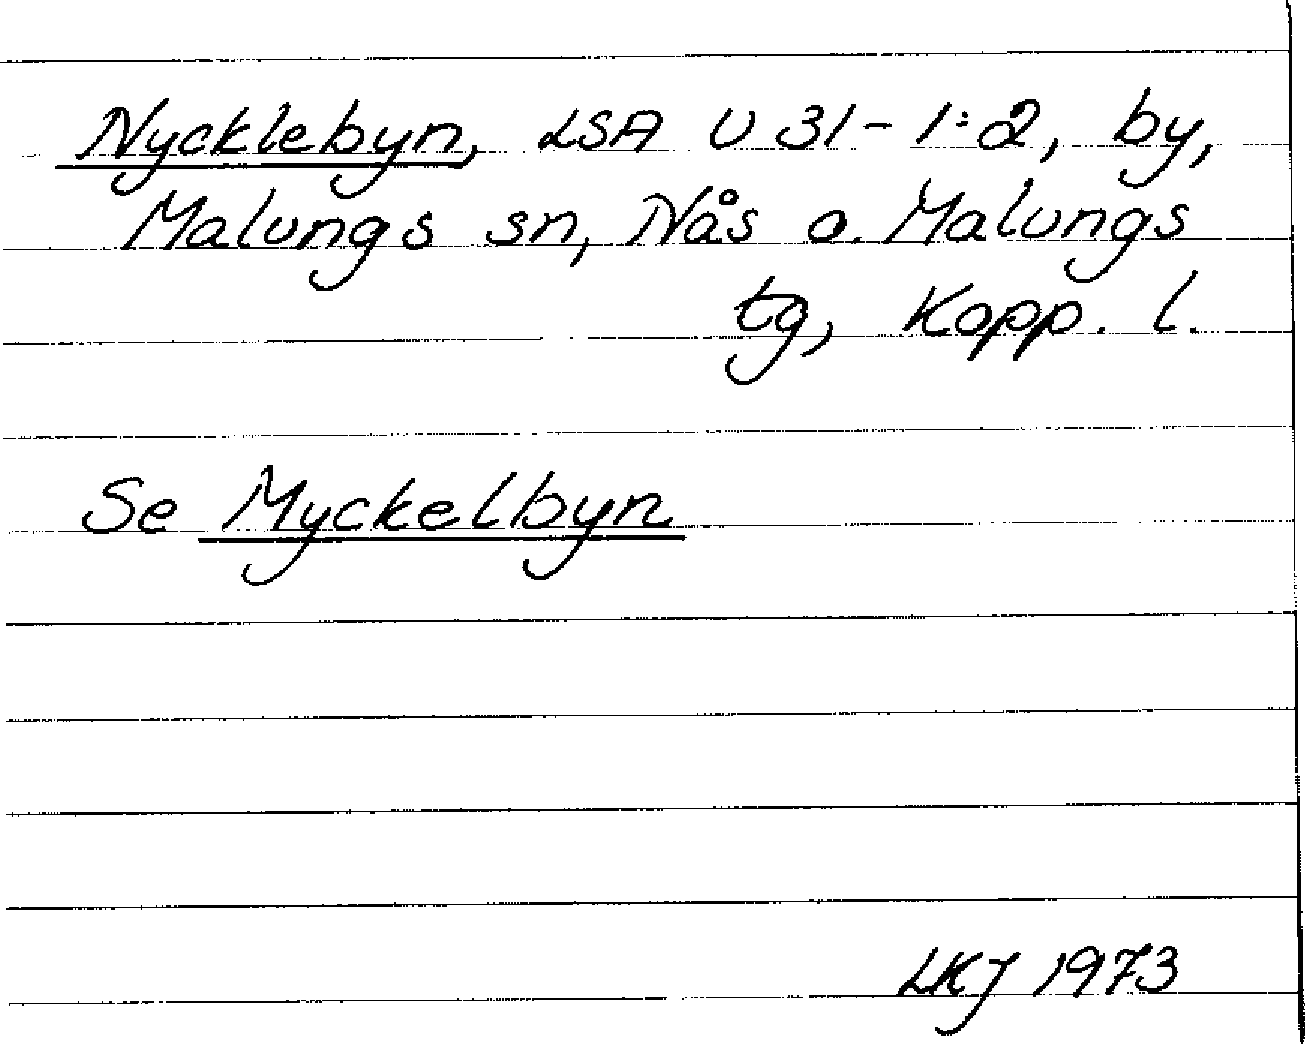 Nycklebyn, LSA U 31-1:2, by,
Malungs sn, Nås o. Malungs
tg, Kopp. l.
Se Myckelbyn
LKJ 1973